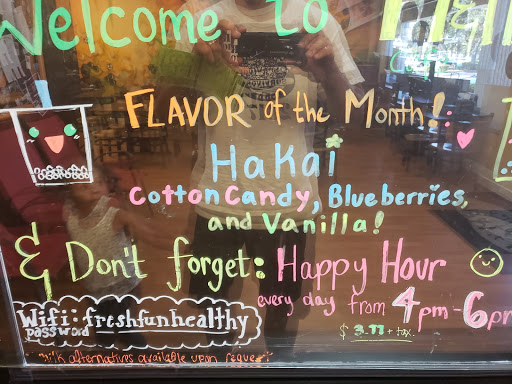 Welcome to
FLAVOR of the Month!
Hakai
Cotton Candy, Blueberries,
and Vanilla!
& Don't forget: Happy Hour
every day from 4pm - 6pm
$ 3.77 + tax
Wifi: freshfunhealthy
password
milk alternatives available upon request